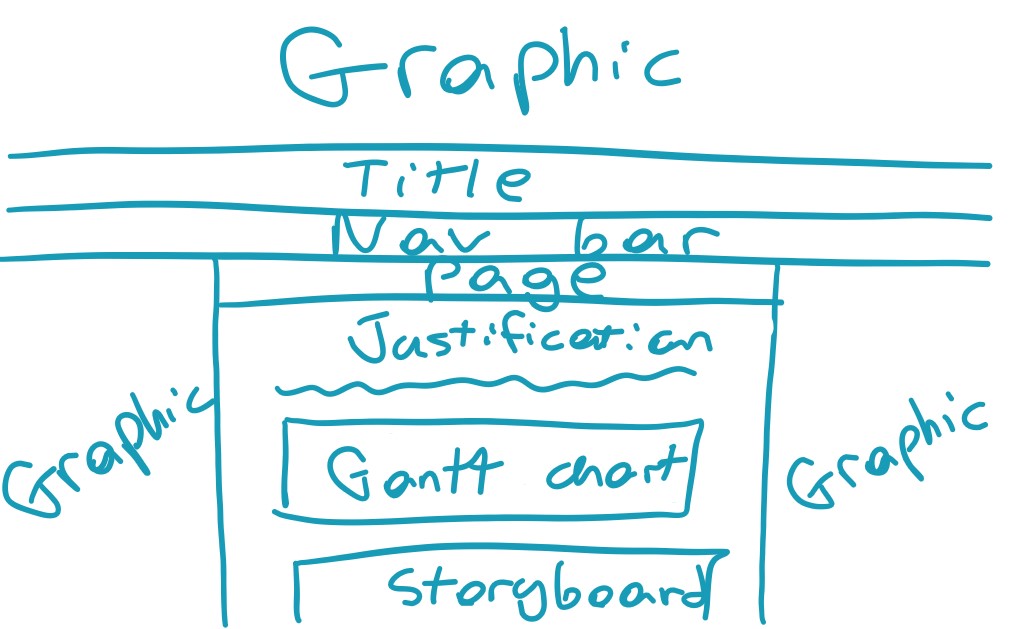 Graphic
Title
Nav bar
Page
Justification
Graphic
Graphic
Gantt chart
Storyboard